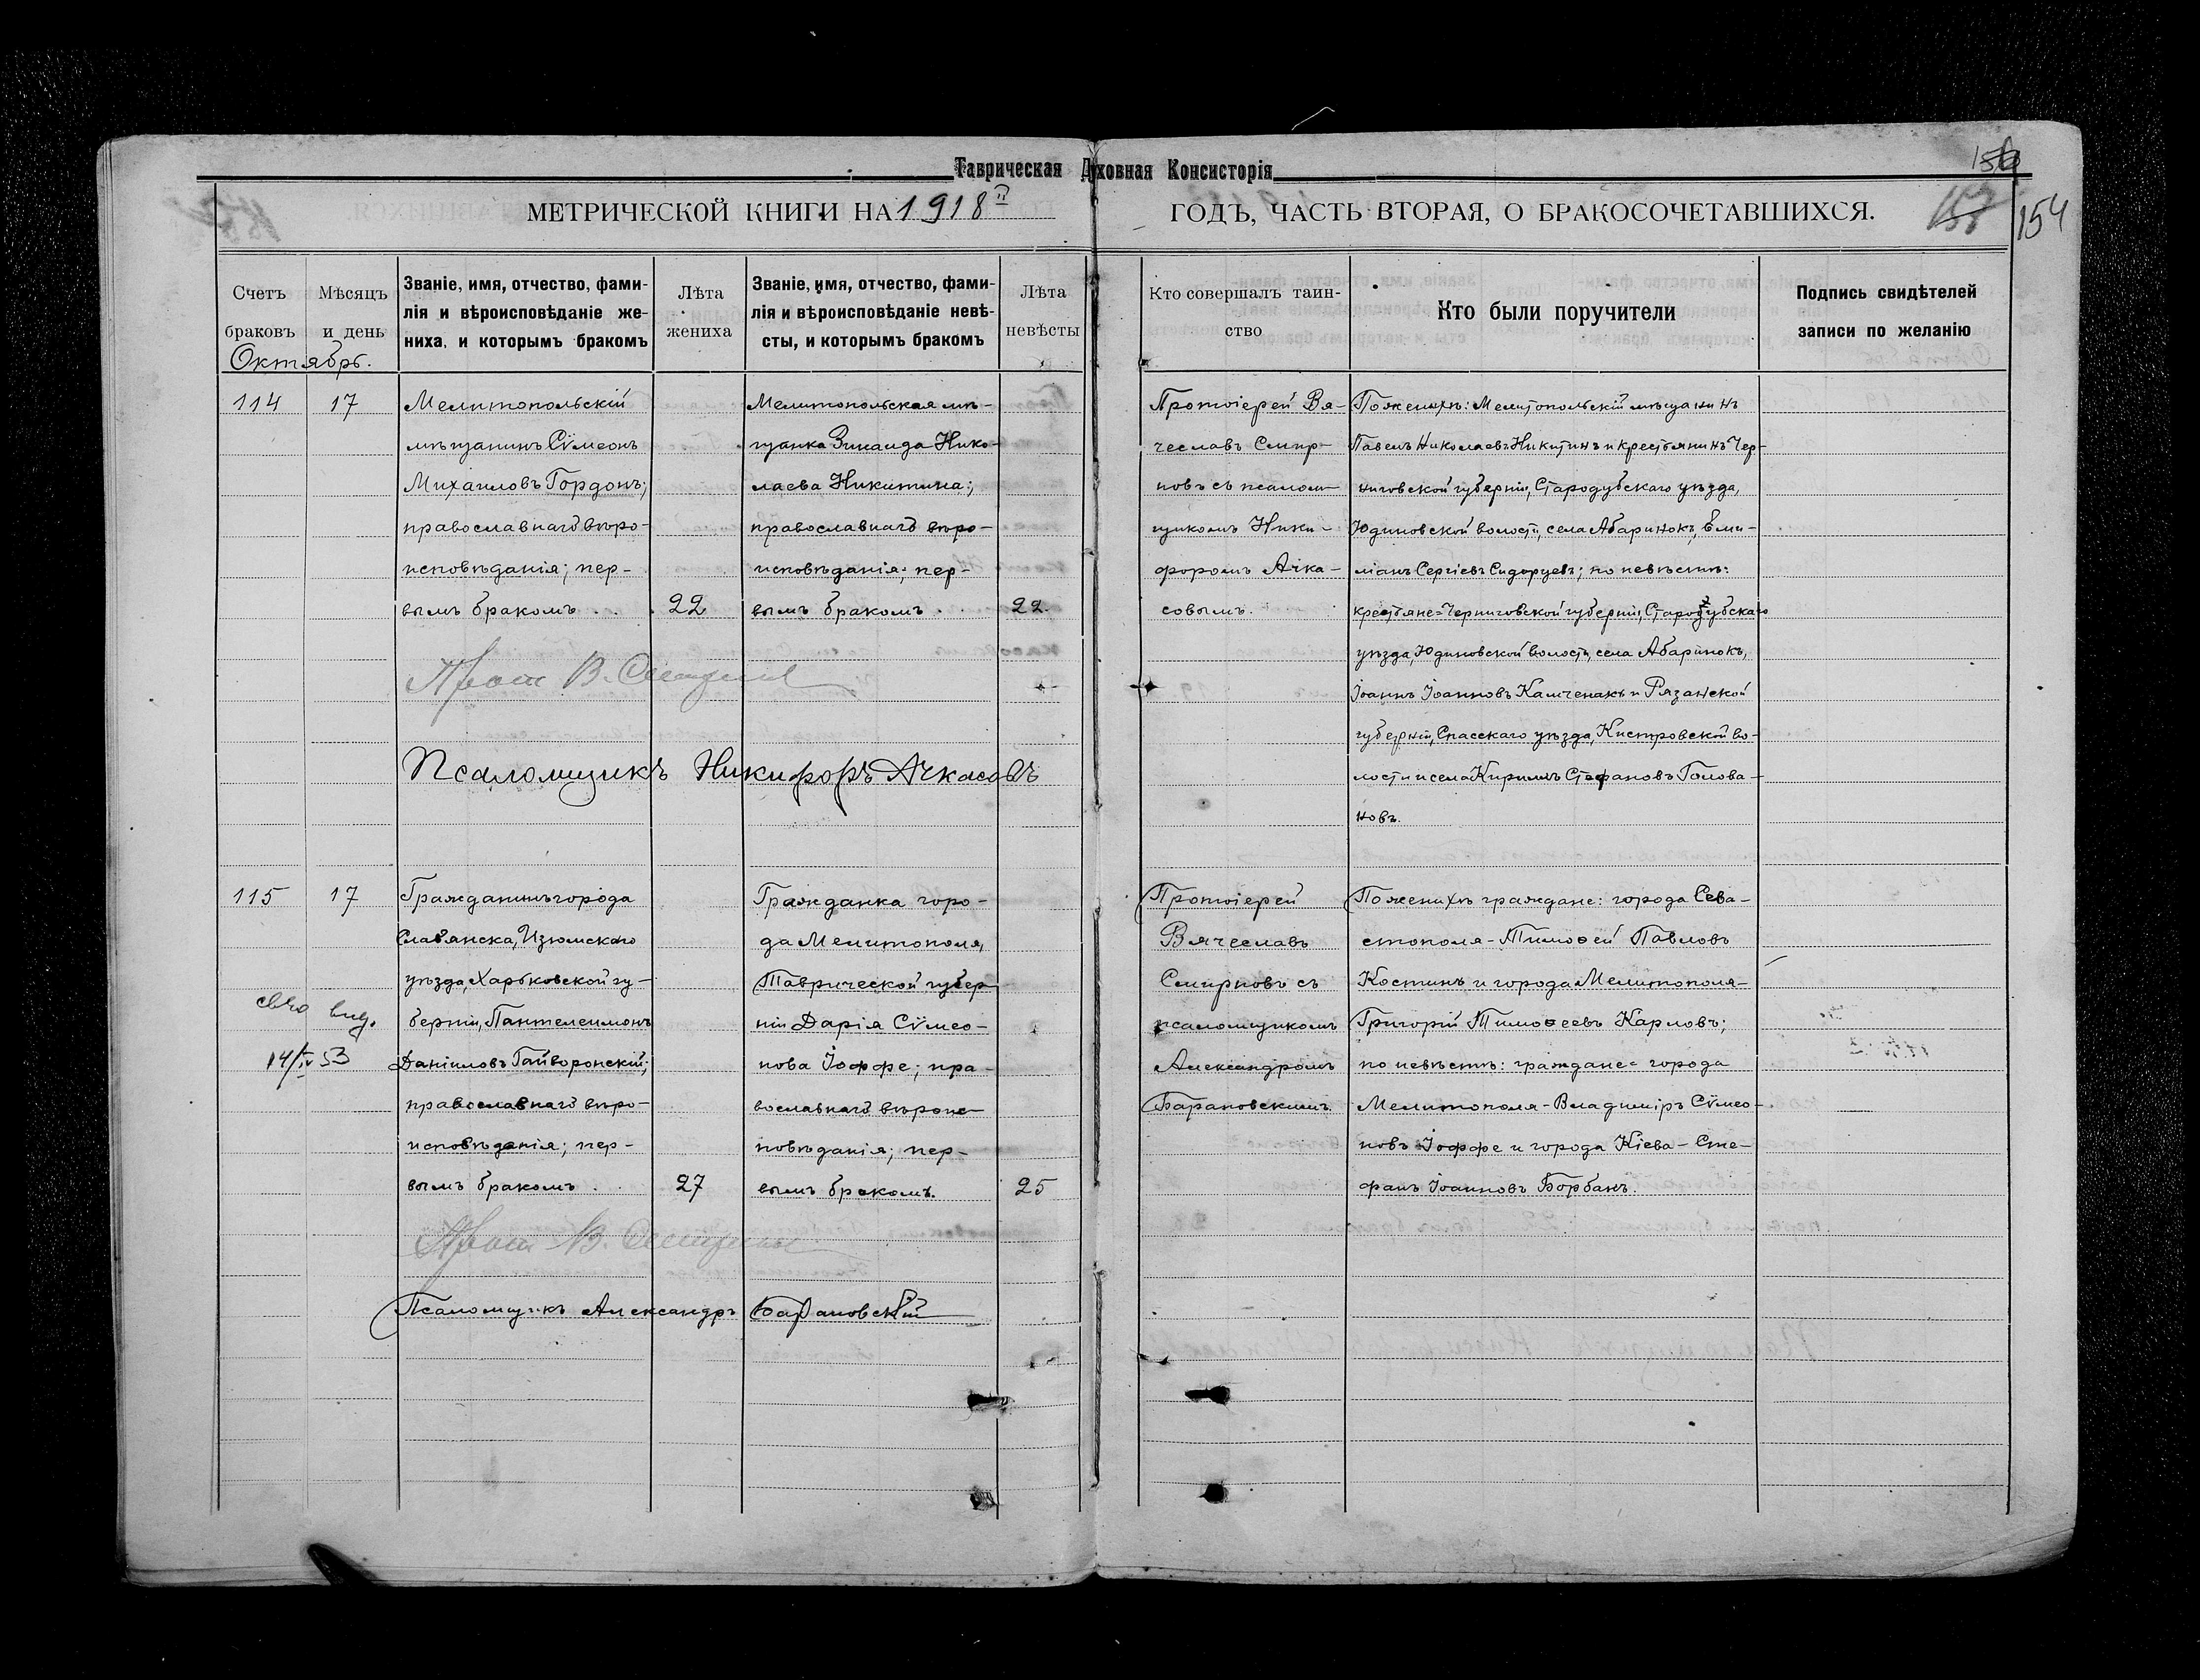 Таврическая Духовная Консисторія
154
МЕТРИЧЕСКОЙ КНИГИ НА 1918й ГОДЪ, ЧАСТЬ ВТОРАЯ, О БРАКОСОЧЕТАВШИХСЯ.
Счетъ
браковъ
Мѣсяцъ
и день
Званіе, имя, отчество, фами-
лія и вѣроисповѣданіе же-
ниха, и которымъ бракомъ
Лѣта
жениха
Званіе, имя, отчество, фами-
лія и вѣроисповѣданіе невѣ-
сты, и которымъ бракомъ
Лѣта
невѣсты
Кто совершалъ таин-
ство
Кто были поручители
Подпись свидѣтелей
записи по желанію
Октябрь.
114
17
Мелитопольскій
мѣщанинъ Сѵмеонъ
Михаиловъ Гордонъ;
православнаго вѣро-
исповѣданія; пер-
вымъ бракомъ . .
22
Мелитопольская мѣ-
щанка Зинаида Нико-
лаева Никитина;
православнаго вѣро-
исповѣданія; пер-
вымъ бракомъ . .
22.
Протоіерей Вя-
чеславъ Смир-
новъ съ псалом-
щикомъ Ники-
форомъ Ачка-
совымъ.
По женихѣ: Мелитопольскій мѣщанинъ
Павелъ Николаевъ Никитинъ и крестьянинъ Чер-
ниговской губерніи, Стародубскаго уѣзда,
Юдиновской волости, села Абаринокъ, Еми-
ліанъ Сергіевъ Сидорцевъ; по невѣстѣ:
крестьяне=Черниговской губерніи, Стародубскаго
уѣзда, Юдиновской волости, села Абаринокъ,
Іоаннъ Іоанновъ Камченакъ и Рязанской
губерніи, Спасскаго уѣзда, Кистровской во-
лости и села Кириллъ Стефановъ Голова-
новъ.
Прот В. Смирновъ
Псаломщикъ Никифоръ Ачкасовъ
115
17
Гражданинъ города
Славянска, Изюмскаго
уѣзда, Харьковской гу-
берніи, Пантелеимонъ
Даніиловъ Гайворонскій;
православнаго вѣро-
исповѣданія; пер-
вымъ бракомъ . .
27
Гражданка горо-
да Мелитополя,
Таврической губер
ніи Дарія Сѵмео-
нова Іоффе; пра-
вославнаго вѣроис-
повѣданія; пер-
вымъ бракомъ.
25
Протоіерей
Вячеславъ
Смирновъ съ
псаломщикомъ
Александромъ
Барановскимъ.
По женихѣ граждане: города Сева-
стополя - Тимоѳей Павловъ
Костинъ и города Мелитополя-
Григорій Тимоѳеевъ Карловъ;
по невѣстѣ: граждане= города
Мелитополя - Владиміръ Сѵмео-
новъ Іоффе и города Кіева - Сте-
фанъ Іоанновъ Борбанъ.
свто выд.
14/IV 53
Прот В. Смирновъ
Псаломщикъ Александръ Барановскій